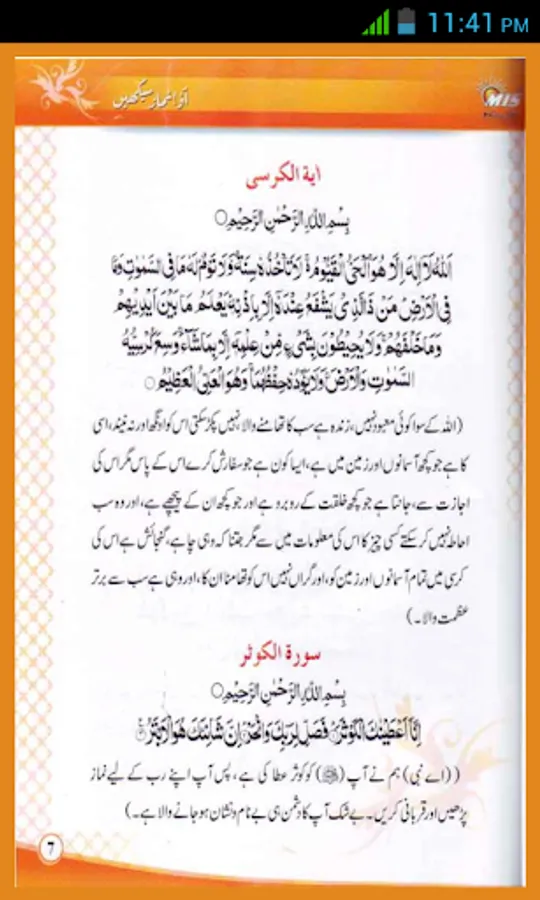 11:41 PM
آؤ نماز سیکھیں
MIS
اية الكرسى
بِسْمِ اللّٰهِ الرَّحْمٰنِ الرَّحِيْمِ○
اَللّٰهُ لَاۤ اِلٰهَ اِلَّا هُوَ اَلْحَىُّ الْقَيُّوْمُ ۚ لَا تَاْخُذُهٗ سِنَةٌ وَّلَا نَوْمٌ لَهٗ مَا فِى السَّمٰوٰتِ وَمَا
فِى الْاَرْضِ مَنْ ذَاالَّذِىْ يَشْفَعُ عِنْدَهٗۤ اِلَّا بِاِذْنِهٖ يَعْلَمُ مَا بَيْنَ اَيْدِيْهِمْ
وَمَا خَلْفَهُمْ ۚ وَلَا يُحِيْطُوْنَ بِشَىْءٍ مِّنْ عِلْمِهٖۤ اِلَّا بِمَا شَآءَ ۚ وَسِعَ كُرْسِيُّهُ
السَّمٰوٰتِ وَالْاَرْضَ ۚ وَلَا يَؤُدُهٗ حِفْظُهُمَا ۚ وَهُوَ الْعَلِىُّ الْعَظِيْمُ○
(اللہ کے سوا کوئی معبود نہیں، زندہ ہے سب کا تھامنے والا، نہیں پکڑ سکتی اس کو اونگھ اور نہ نیند، اسی
کا ہے جو کچھ آسمانوں اور زمین میں ہے، ایسا کون ہے جو سفارش کرے اس کے پاس مگر اس کی
اجازت سے، جانتا ہے جو کچھ خلقت کے روبرو ہے اور جو کچھ ان کے پیچھے ہے، اور وہ سب
احاطہ نہیں کر سکتے کسی چیز کا اس کی معلومات میں سے مگر جتنا کہ وہی چاہے، گنجائش ہے اس کی
کرسی میں تمام آسمانوں اور زمین کو، اور گراں نہیں اس کو تھامنا ان کا، اور وہی ہے سب سے برتر
عظمت والا۔)
سورة الكوثر
بِسْمِ اللّٰهِ الرَّحْمٰنِ الرَّحِيْمِ○
اِنَّاۤ اَعْطَيْنٰكَ الْكَوْثَرَ ۝ فَصَلِّ لِرَبِّكَ وَانْحَرْ ۝ اِنَّ شَانِئَكَ هُوَ الْاَبْتَرُ ۝
((اے نبی) ہم نے آپ (ﷺ) کو کوثر عطا کی ہے، پس آپ اپنے رب کے لیے نماز
پڑھیں اور قربانی کریں۔ بے شک آپ کا دشمن ہی بے نام و نشان ہو جانے والا ہے۔)
7